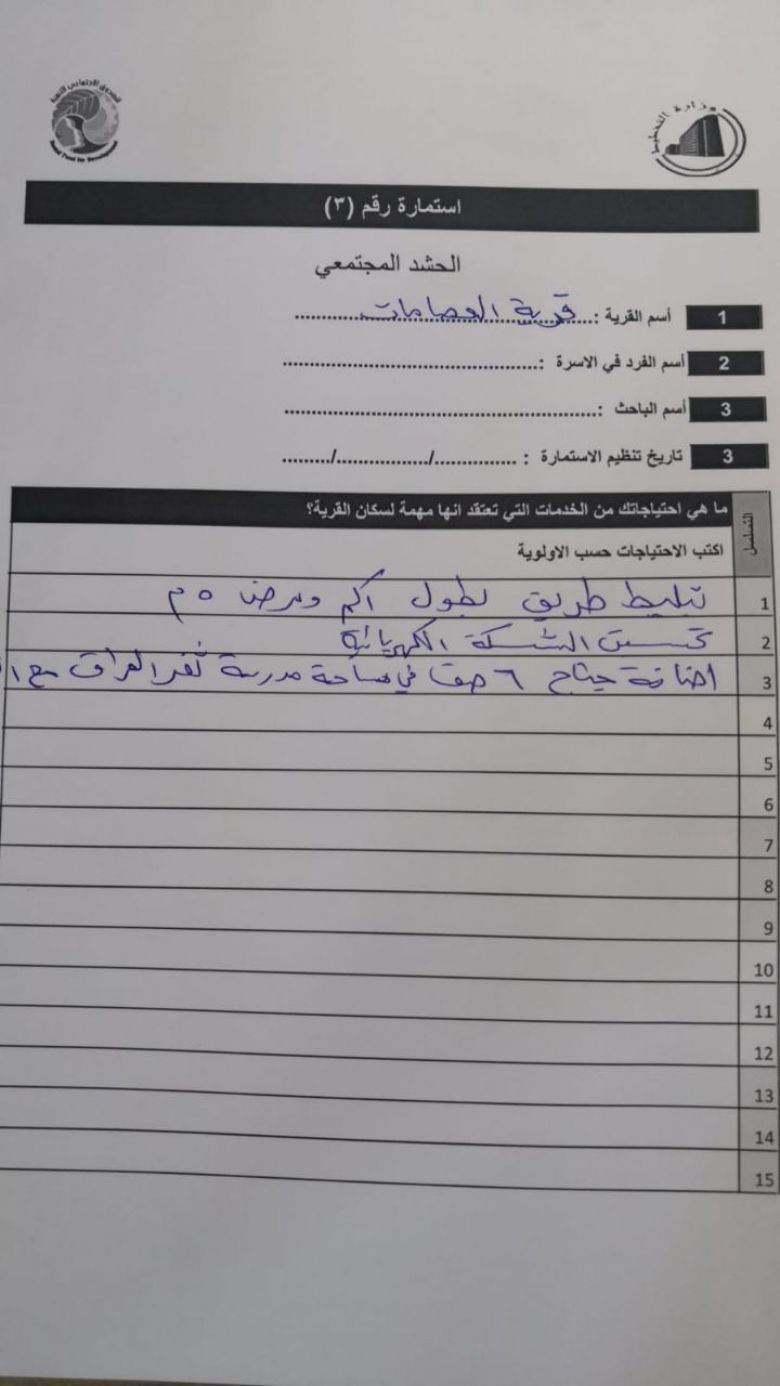 الصندوق الاجتماعي للتنمية
Social Fund for Development
وزارة التخطيط
استمارة رقم (٣)
الحشد المجتمعي
1 أسم القرية : قرية العصامات
2 أسم الفرد في الاسرة :
3 أسم الباحث :
3 تاريخ تنظيم الاستمارة : ............../................./.........
التسلسل
ما هي احتياجاتك من الخدمات التي تعتقد انها مهمة لسكان القرية؟
اكتب الاحتياجات حسب الاولوية
1 تبليط طريق بطول ١كم وعرض ٥ م
2 تحسين الشبكة الكهربائية
3 اضافة جناح ٦ صف في مساحة مدرسة ثغر العراق مع
4
5
6
7
8
9
10
11
12
13
14
15